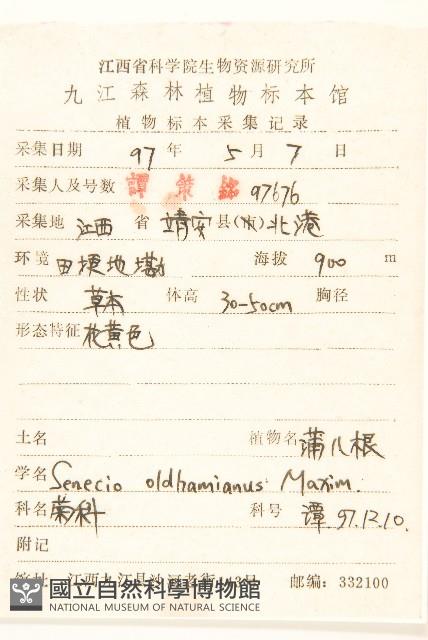 江西省科学院生物资源研究所
九江森林植物标本馆
植物标本采集记录
采集日期 97 年 5 月 7 日
采集人及号数 譚策銘 97676
采集地 江西 省 靖安 县(市) 北港
环境 田埂地墈 海拔 900 m
性状 草本 体高 30-50cm 胸径
形态特征 花黄色
土名 植物名 蒲儿根
学名 Senecio oldhamianus Maxim.
科名 菊科 科号 谭 97.12.10.
附记
江西九江县沙河老街 邮编: 332100
國立自然科學博物館
NATIONAL MUSEUM OF NATURAL SCIENCE